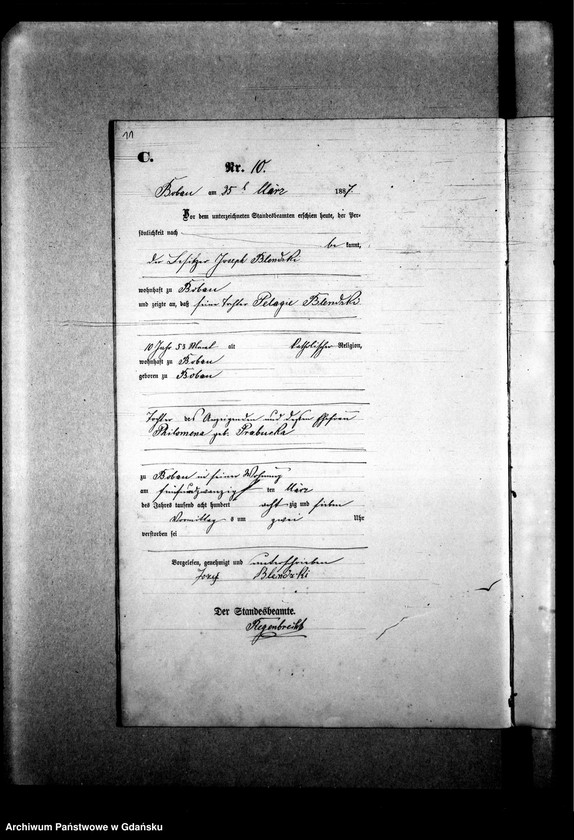 11
C.
Nr. 10.
Boban am 25 März 1887.
Vor dem unterzeichneten Standesbeamten erschien heute, der Per-
sönlichkeit nach
be kannt,
der Besitzer Joseph Blendzki
wohnhaft zu Boban
und zeigte an, daß seine Tochter Pelagie Blendzki
10 Jahr alt katholischer Religion,
wohnhaft zu Boban
geboren zu Boban
Tochter des Anzeigenden und dessen Ehefrau
Philomena geb. Grabucka
zu Boban in seiner Wohnung
am fünfundzwanzigsten März
des Jahres tausend acht hundert acht zig und sieben
Vormittags um zwei Uhr
verstorben sei
Vorgelesen, genehmigt und unterschrieben
Jozef Blendzki
Der Standesbeamte.
Regenbrecht
Archiwum Państwowe w Gdańsku